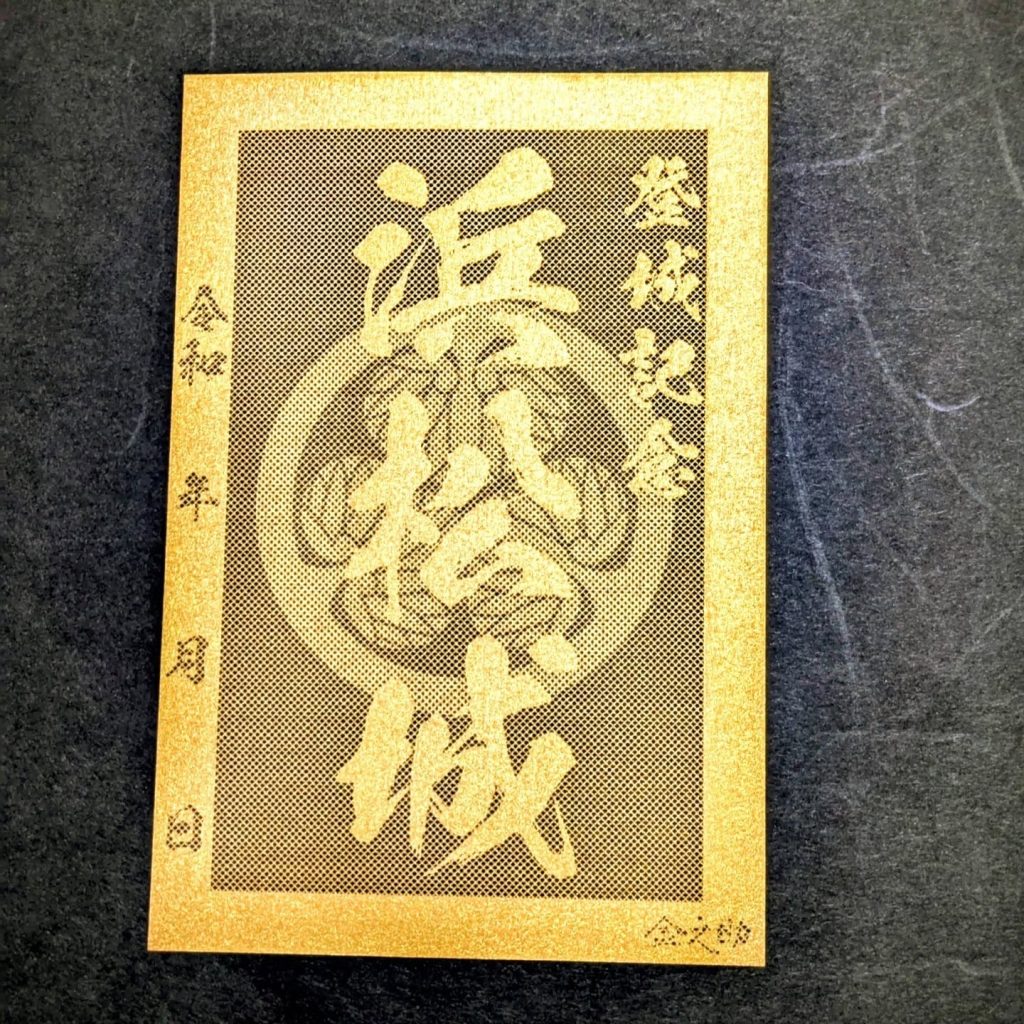 登城記念
浜松城
令和 年 月 日
金之助